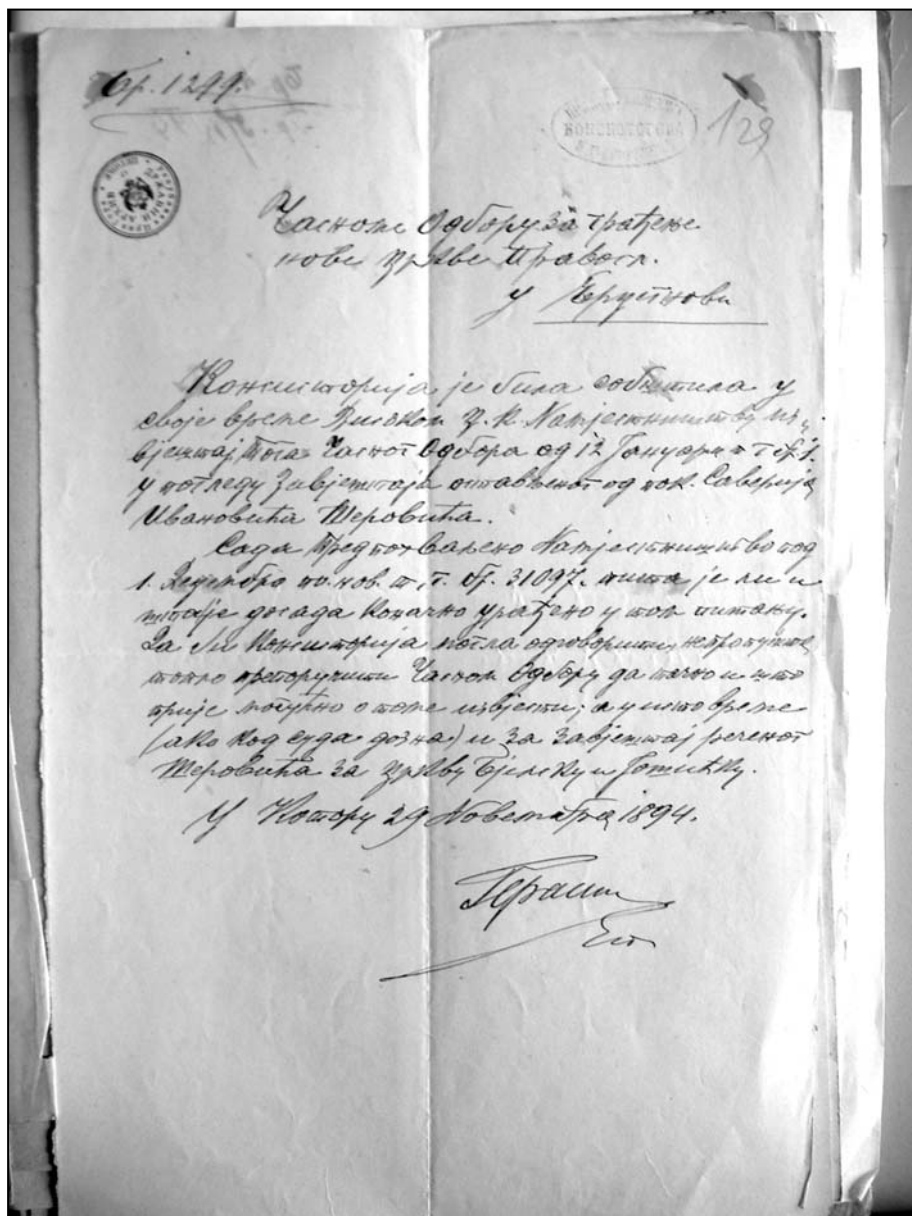 Бр. 1299.
129
Часноме Одбору за грађење
нове цркве Правосл.
у Ерцегнови
Консисторија је била собштила у
своје време Високом Ц. К. Намјестништву
вјештај тога Часног Одбора од 12 Јануара т. г. Бр. 1.
у погледу Завјештаја оставьеног од пок. Саверија
Ивановића Шеровића.
Сада Предпохваљено Намјестништво под
1. Децембра по нов. т. г. бр. 31097. пита је ли и
шта је досада коначно урађено у том питању.
Да би Консисторија могла одговорити,
топло препоручити Часном Одбору да тачно и што
прије могућно о томе извјести; а у исто време
(ако код суда дозна) и за завјештај реченог
Шеровића за цркву Бјелску и Јошићку.
У Котору 29 Новембра 1894.
Герасим
Еп